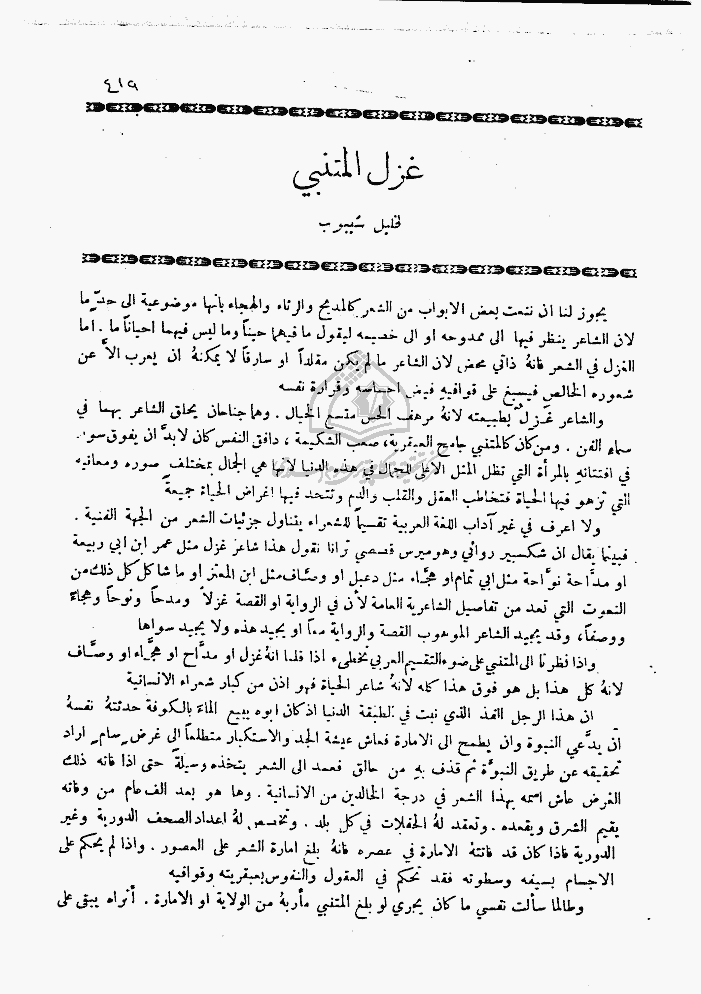 ٤١٩
غزل المتنبي
لخليل شيبوب
يجوز لنا ان ننعت بعض الابواب من الشعر كالمديح والرثاء والهجاء بأنها موضوعية الى حدٍّ ما
لان الشاعر ينظر فيها الى ممدوحه او الى خصيمه ليقول ما فيهما حيناً وما ليس فيهما احياناً ما . اما
الغزل في الشعر فانهُ ذاتي محض لان الشاعر ما لم يكن مقلداً او سارقاً لا يمكنهُ ان يعرب الاَّ عن
شعوره الخالص فيسبغ على قوافيه فيض احساسه وقرارة نفسه
والشاعر غَزِلٌ بطبيعته لانهُ مرهف الحس متسع الخيال . وهما جناحان يحلق الشاعر بهما في
سماء الفن . ومن كان كالمتنبي جامح العبقرية ، صعب الشكيمة ، دافق النفس كان لابدَّ ان يفوق سواه
في افتتانه بالمرأة التي تظل المثل الاعلى للجمال في هذه الدنيا لانها هي الجمال بمختلف صوره ومعانيه
التي تزهو فيها الحياة فتخاطب العقل والقلب والدم وتتحد فيها اغراض الحياة جميعةً
ولا اعرف في غير آداب اللغة العربية تقسيماً للشعراء يتناول جزئيات الشعر من الجهة الفنية .
فبينما يقال ان شكسبير روائي وهوميرس قصصي ترانا نقول هذا شاعر غزل مثل عمر ابن ابي ربيعة
او مدَّاحة نوَّاحة مثل ابي تمام او هجَّاء مثل دعبل او وصَّاف مثل ابن المعتز او ما شاكل كل ذلك من
النعوت التي تعد من تفاصيل الشاعرية العامة لأن في الرواية او القصة غزلاً ومدحاً ونوحاً وهجاءً
ووصفاً ، وقد يجيد الشاعر الموهوب القصة والرواية معاً او يجيد هذه ولا يجيد سواها
واذا نظرنا الى المتنبي على ضوء التقسيم العربي نخطىء اذا قلنا انهُ غزل او مدَّاح او هجَّاء او وصَّاف
لانهُ كل هذا بل هو فوق هذا كله لانهُ شاعر الحياة فهو اذن من كبار شعراء الانسانية
ان هذا الرجل الفذ الذي نبت في الطبقة الدنيا اذ كان ابوه يبيع الماءَ بالكوفة حدثتهُ نفسهُ
ان يدَّعي النبوة وان يطمح الى الامارة فعاش عيشة الجد والاستكبار متطلعاً الى غرض سامٍ اراد
تحقيقه عن طريق النبوَّة ثم قذف بهِ من حالق فعمد الى الشعر يتخذه وسيلةً حتى اذا فاته ذلك
الغرض عاش اسمه بهذا الشعر في درجة الخالدين من الانسانية . وها هو بعد الف عام من وفاته
يقيم الشرق ويقعده . وتعقد لهُ الحفلات في كل بلد . وتخصص لهُ اعداد الصحف الدورية وغير
الدورية فاذا كان قد فاتتهُ الامارة في عصره فانهُ بلغ امارة الشعر على العصور . واذا لم يحكم على
الاجسام بسيفه وسطوته فقد تحكم في العقول والنفوس بعبقريته وقوافيه
وطالما سألت نفسي ما كان يجري لو بلغ المتنبي مأربهُ من الولاية او الامارة . أتراه يبقى على